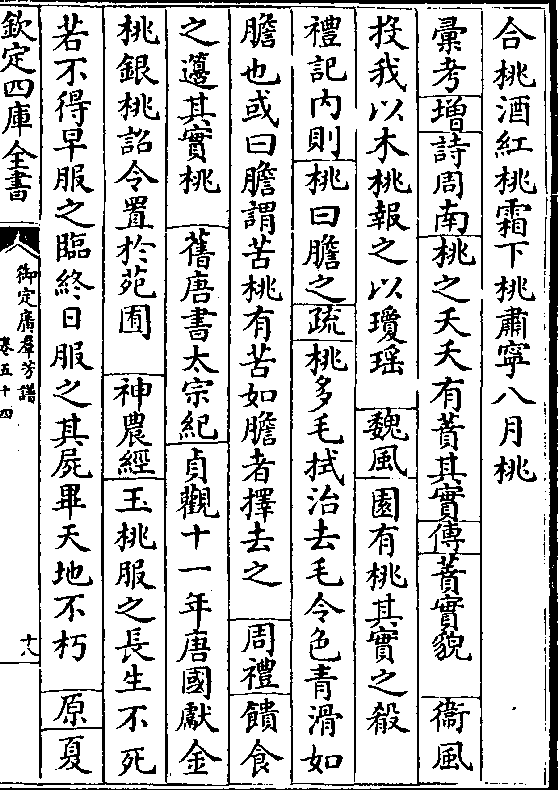 合桃酒紅桃霜下桃肅寧八月桃
彙考增詩周南桃之夭夭有蕡其實傳蕡實貌　衞風
投我以木桃報之以瓊瑶　魏風園有桃其實之殽
禮記内則桃曰膽之疏桃多毛拭治去毛令色青滑如
膽也或曰膽謂苦桃有苦如膽者擇去之　周禮饋食
之籩其實桃　舊唐書太宗紀貞觀十一年唐國獻金
桃銀桃詔令置於苑囿　神農經玉桃服之長生不死
若不得早服之臨終日服之其屍畢天地不朽　原夏
欽定四庫全書
御定廣羣芳譜
卷五十四
十八